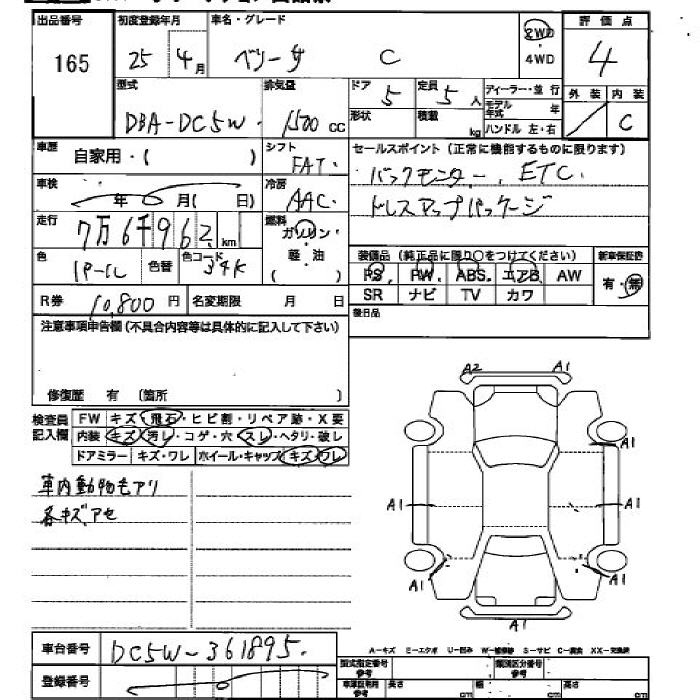 出品番号 初度登録年月 車名・グレード 評価点
165 25年 4月 ベリーサ C 2WD・4WD 4
型式 排気量 ドア 定員 ディーラー・並行 外装 内装
DBA-DC5W 1500cc 5 5人 モデル年式 年 C
形状 積載 kg ハンドル 左・右
車歴 自家用・( ) シフト FAT セールスポイント (正常に機能するものに限ります)
車検 年 月( 日) 冷房 AAC バックモニター, ETC.
走行 7万6千962km 燃料 ガソリン・軽・油 ( ) ドレスアップパッケージ
色 パール 色替 色コード 34K 装備品 (純正品に限り○をつけてください) 新車保証書
PS PW ABS エアB AW 有・無
R券 10,800円 名変期限 月 日 SR ナビ TV カワ
注意事項申告欄 (不具合内容等は具体的に記入して下さい) 後日品
修復歴 有 (箇所 )
検査員記入欄 FW キズ・飛石・ヒビ割・リペア跡・X要
内装 キズ・汚レ・コゲ・穴・スレ・ヘタリ・破レ
ドアミラー キズ・ワレ ホイール・キャップ キズ・ワレ
A2 A1
A1
A1 A1
A1 A1
A1
車内動物毛アリ
各キズ,アセ
車台番号 DC5W-361895
A-キズ E-エクボ U-凹み W-補修跡 S-サビ C-腐食 XX-交換済
登録番号 型式指定番号 参考 類別区分番号 参考
長さ cm 幅 cm 高さ cm